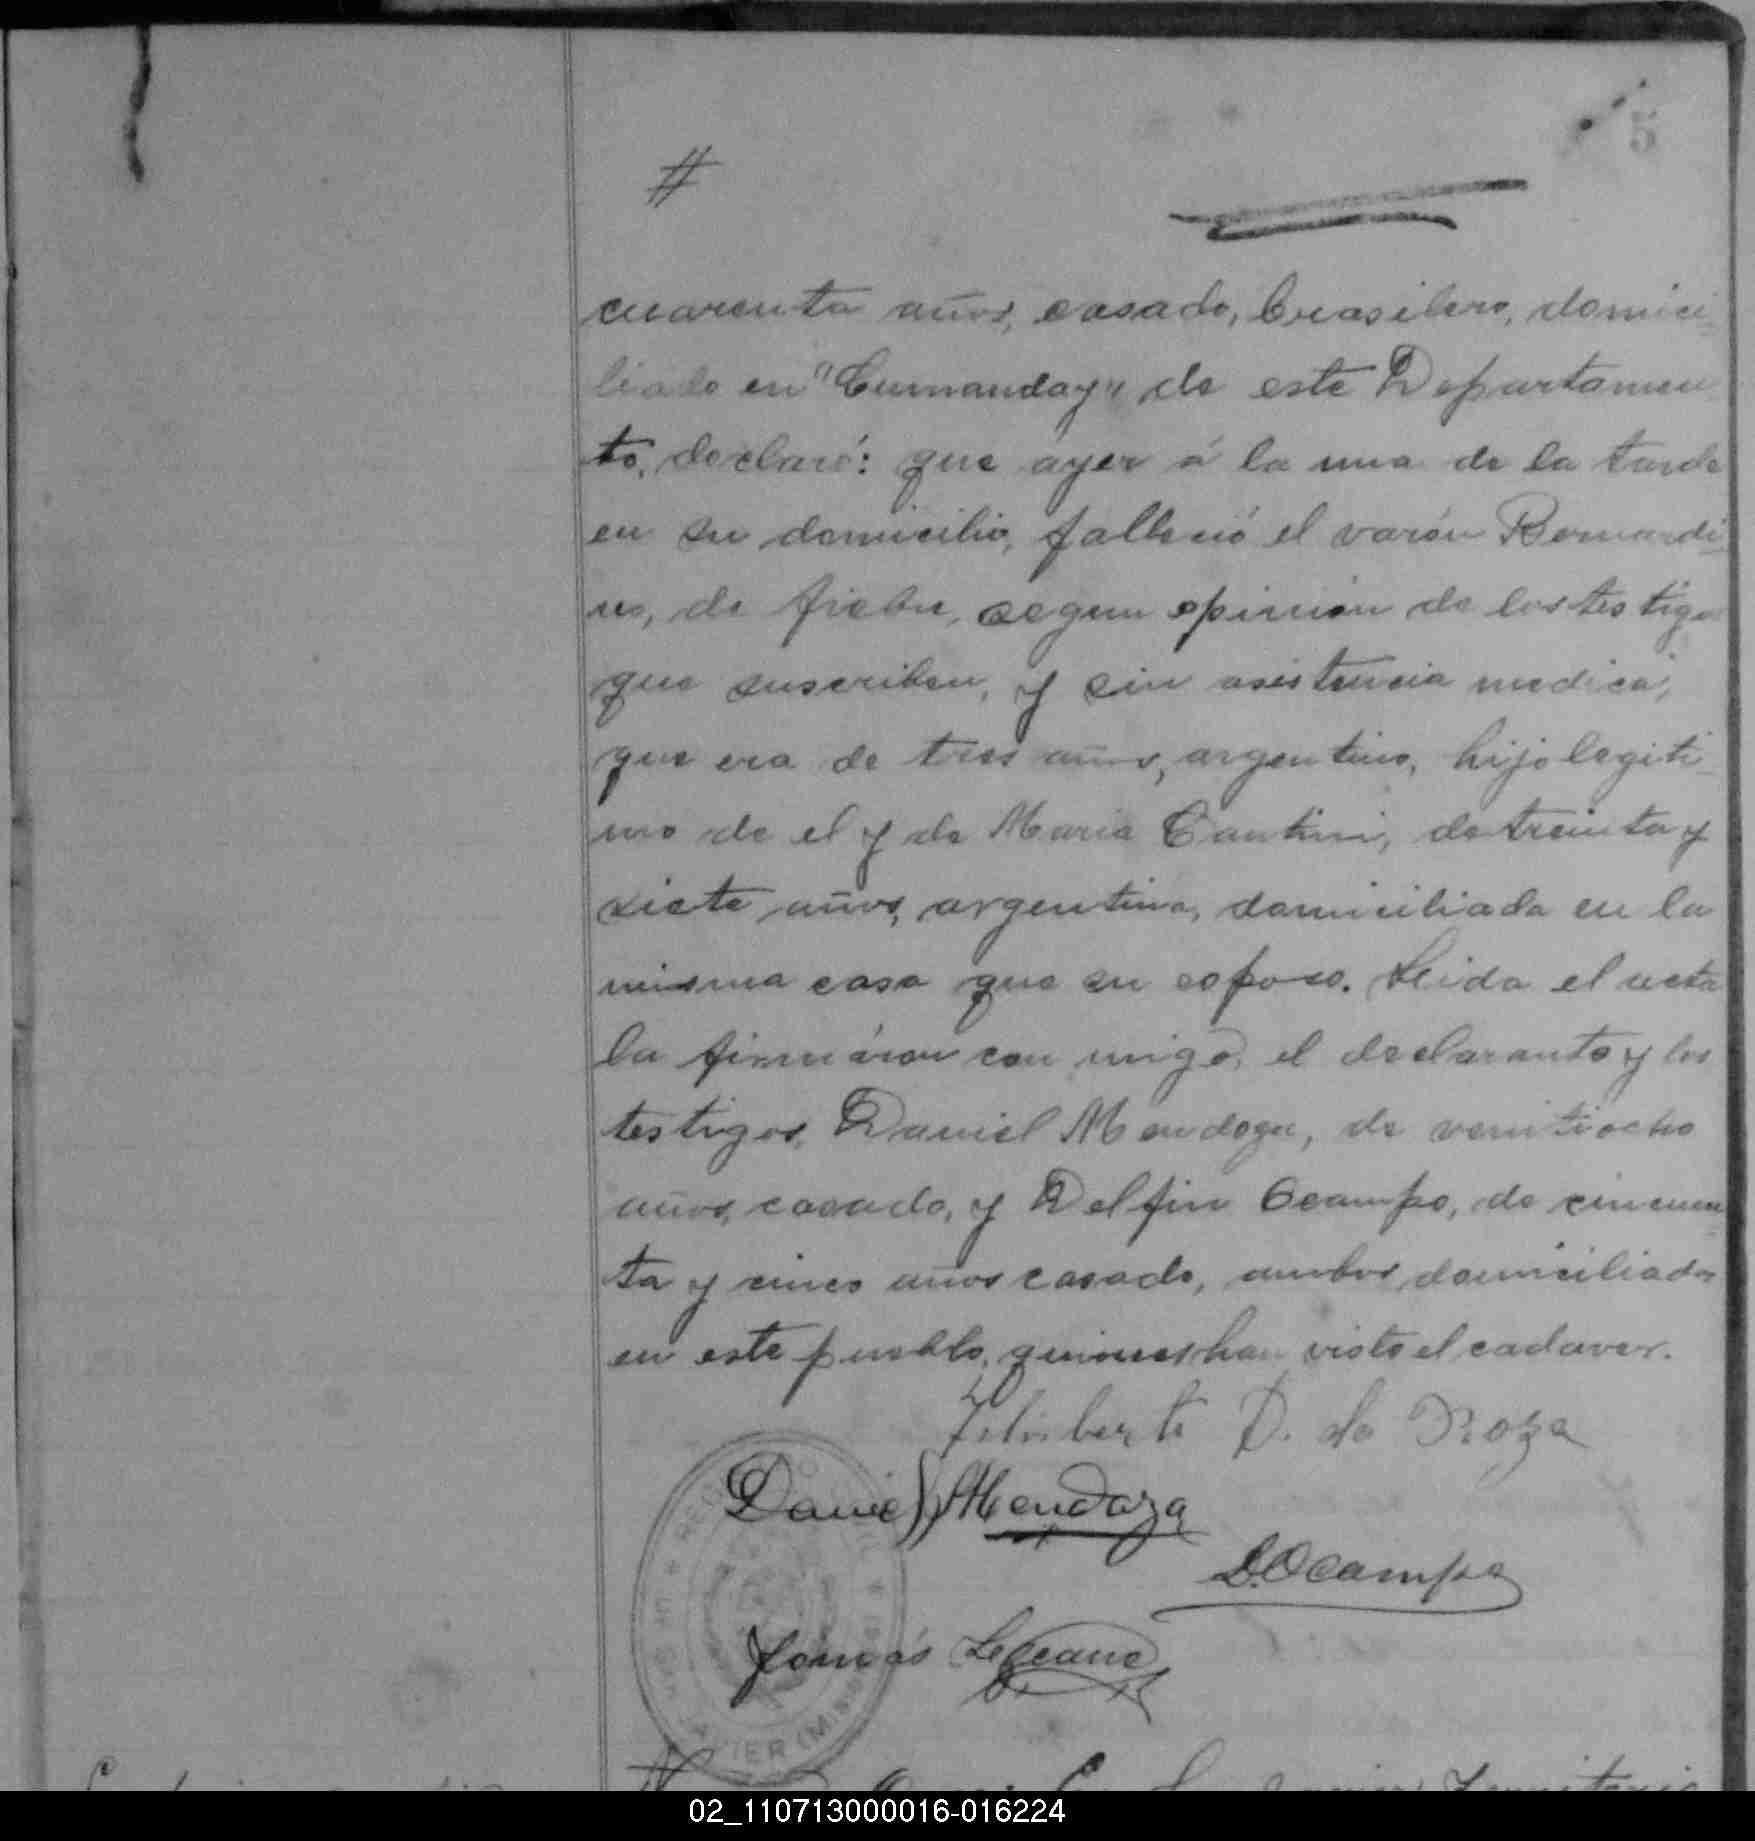 5
#
cuarenta años, casado, brasilero, domici-
liado en "Cumanday" de este Departamen
to, declaró: que ayer á la una de la tarde
en su domicilio, falleció el varón Bernardi-
no, de fiebre, segun opinión de los testigos
que suscriben, y sin asistencia medica;
que era de tres años, argentino, hijo legiti-
mo de el y de Maria Cantini, de treinta y
siete años, argentina, domiciliada en la
misma casa que su esposo. Leida el acta
la firmáron con migo, el declarante y los
testigos, Daniel Mendoza, de veintiocho
años, casado, y Delfin Ocampo, de cincuen-
ta y cinco años casado, ambos domiciliados
en este pueblo, quienes han visto el cadaver.
Feliberto D. da Roza
Daniel Mendoza
D. Ocampo
Tomás
02_110713000016-016224